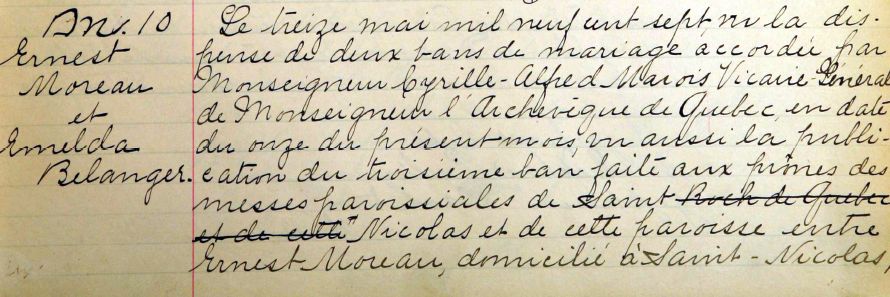 M. 10
Ernest
Moreau
et
Emelda
Belanger.
Le treize mai mil neuf cent sept, vu la dis-
pense de deux bans de mariage accordée par
Monseigneur Cyrille-Alfred Marois Vicaire Général
de Monseigneur l'Archevêque de Quebec, en date
du onze du présent mois, vu aussi la publi-
cation du troisième ban faite aux prônes des
messes paroissiales de Saint Roch de Quebec
et de cette Nicolas et de cette paroisse entre
Ernest Moreau, domicilié à Saint-Nicolas,